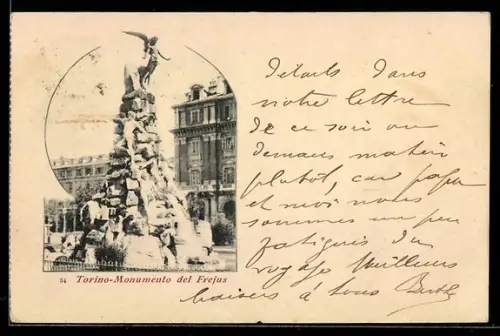 Détails dans
notre lettre
de ce soir ou
demain matin
plutôt, car papa
et moi nous
sommes un peu
fatigués du
voyage Meilleurs
baisers à tous
54 Torino-Monumento del Frejus